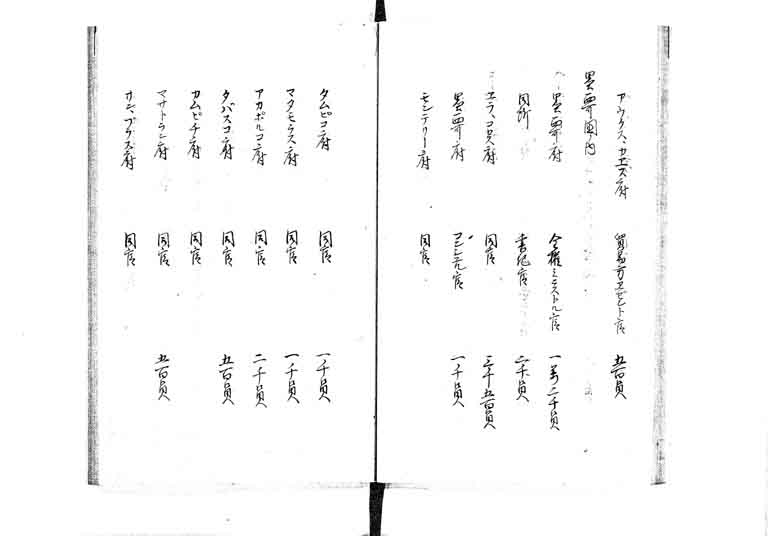 アウクス、カエズ府 貿易方エゼント官 五百員
墨西哥国内
墨西哥府 全権ミニストル官 一万二千員
同所 書紀官 二千員
ユラ、コ□府 同官 三千五百員
墨西哥府 コンシュル官 一千員
モンテリー府 同官
タムピコ府 同官 一千員
マタモラス府 同官 一千員
アカポルコ府 同官 二千員
タバスコ府 同官 五百員
カムピチ府 同官
マサトラン府 同官 五百員
サン、ブラズ府 同官